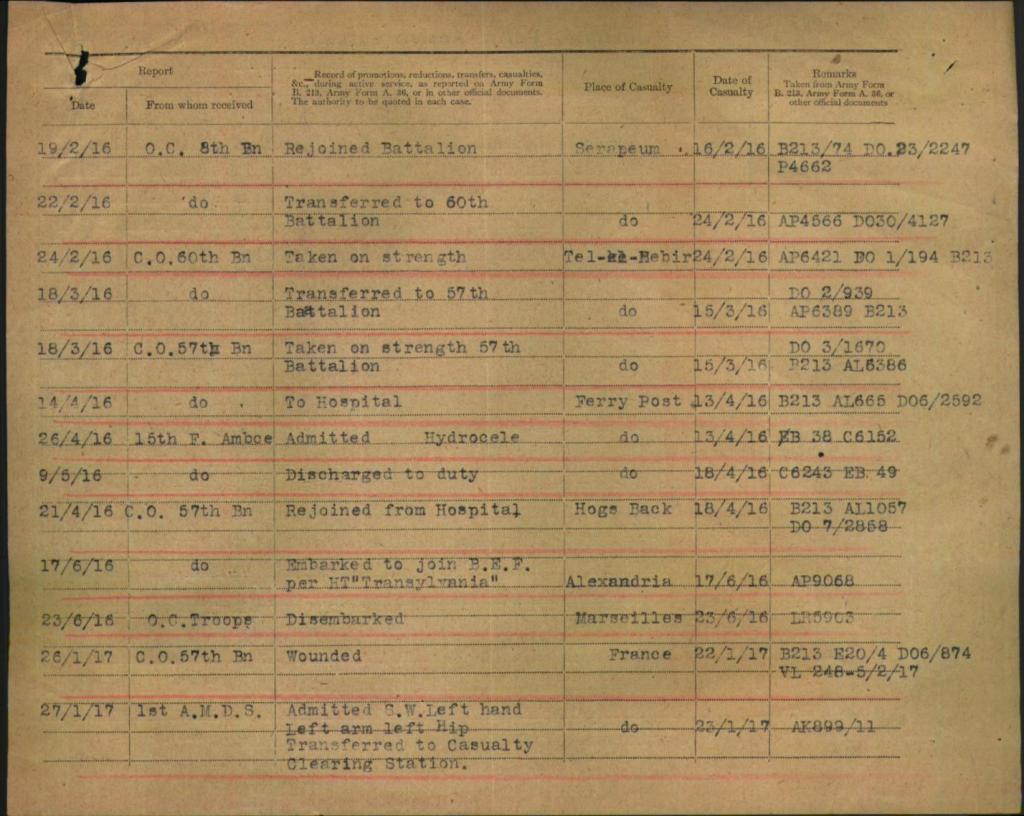 Report
Date
From whom received
Record of promotions, reductions, transfers, casualties,
&c., during active service, as reported on Army Form
B. 213, Army Form A. 36, or in other official documents.
The authority to be quoted in each case.
Place of Casualty
Date of
Casualty
Remarks
Taken from Army Form
B. 213, Army Form A. 36, or
other official documents
19/2/16 O.C. 8th Bn Rejoined Battalion Serapeum 16/2/16 B213/74 DO.23/2247
P4662
22/2/16 do Transferred to 60th
Battalion do 24/2/16 AP4566 DO30/4127
24/2/16 C.O.60th Bn Taken on strength 24/2/16 AP6421 DO 1/194 B213
18/3/16 do Transferred to 57th DO 2/939
Battalion do 15/3/16 AP6389 B213
18/3/16 C.O.57th Bn Taken on strength 57th DO 3/1670
Battalion do 15/3/16 B213 AL6386
14/4/16 do To Hospital Ferry Post 13/4/16 B213 AL665 DO6/2592
26/4/16 15th F. Ambce Admitted Hydrocele do 13/4/16 EB 38 C6152
9/5/16 do Discharged to duty do 18/4/16 C6243 EB 49
21/4/16 C.O. 57th Bn Rejoined from Hospital Hogs Back 18/4/16 B213 AL1057
DO 7/2858
17/6/16 do Embarked to join B.E.F.
per HT"Transylvania" Alexandria 17/6/16 AP9068
23/6/16 O.C.Troops Disembarked Marseilles 23/6/16 LR5903
26/1/17 C.O.57th Bn Wounded France 22/1/17 B213 E20/4 DO6/874
VL 248-5/2/17
27/1/17 1st A.M.D.S. Admitted S.W.Left hand
Left arm left Hip do 23/1/17 AK899/11
Transferred to Casualty
Clearing Station.